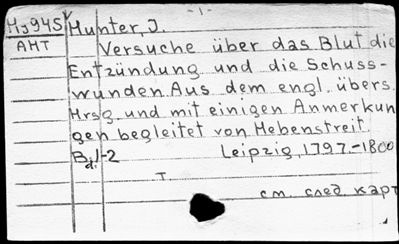 - 1 -
Из945 Hunter, J.
АНТ Versuche über das Blut die
Entzündung und die Schuss-
wunden Aus dem engl. übers.
Hrsg. und mit einigen Anmerkun
gen begleitet von Hebenstreit
Bd. 1-2 Leipzig, 1797.-1800
т.
см. след карт